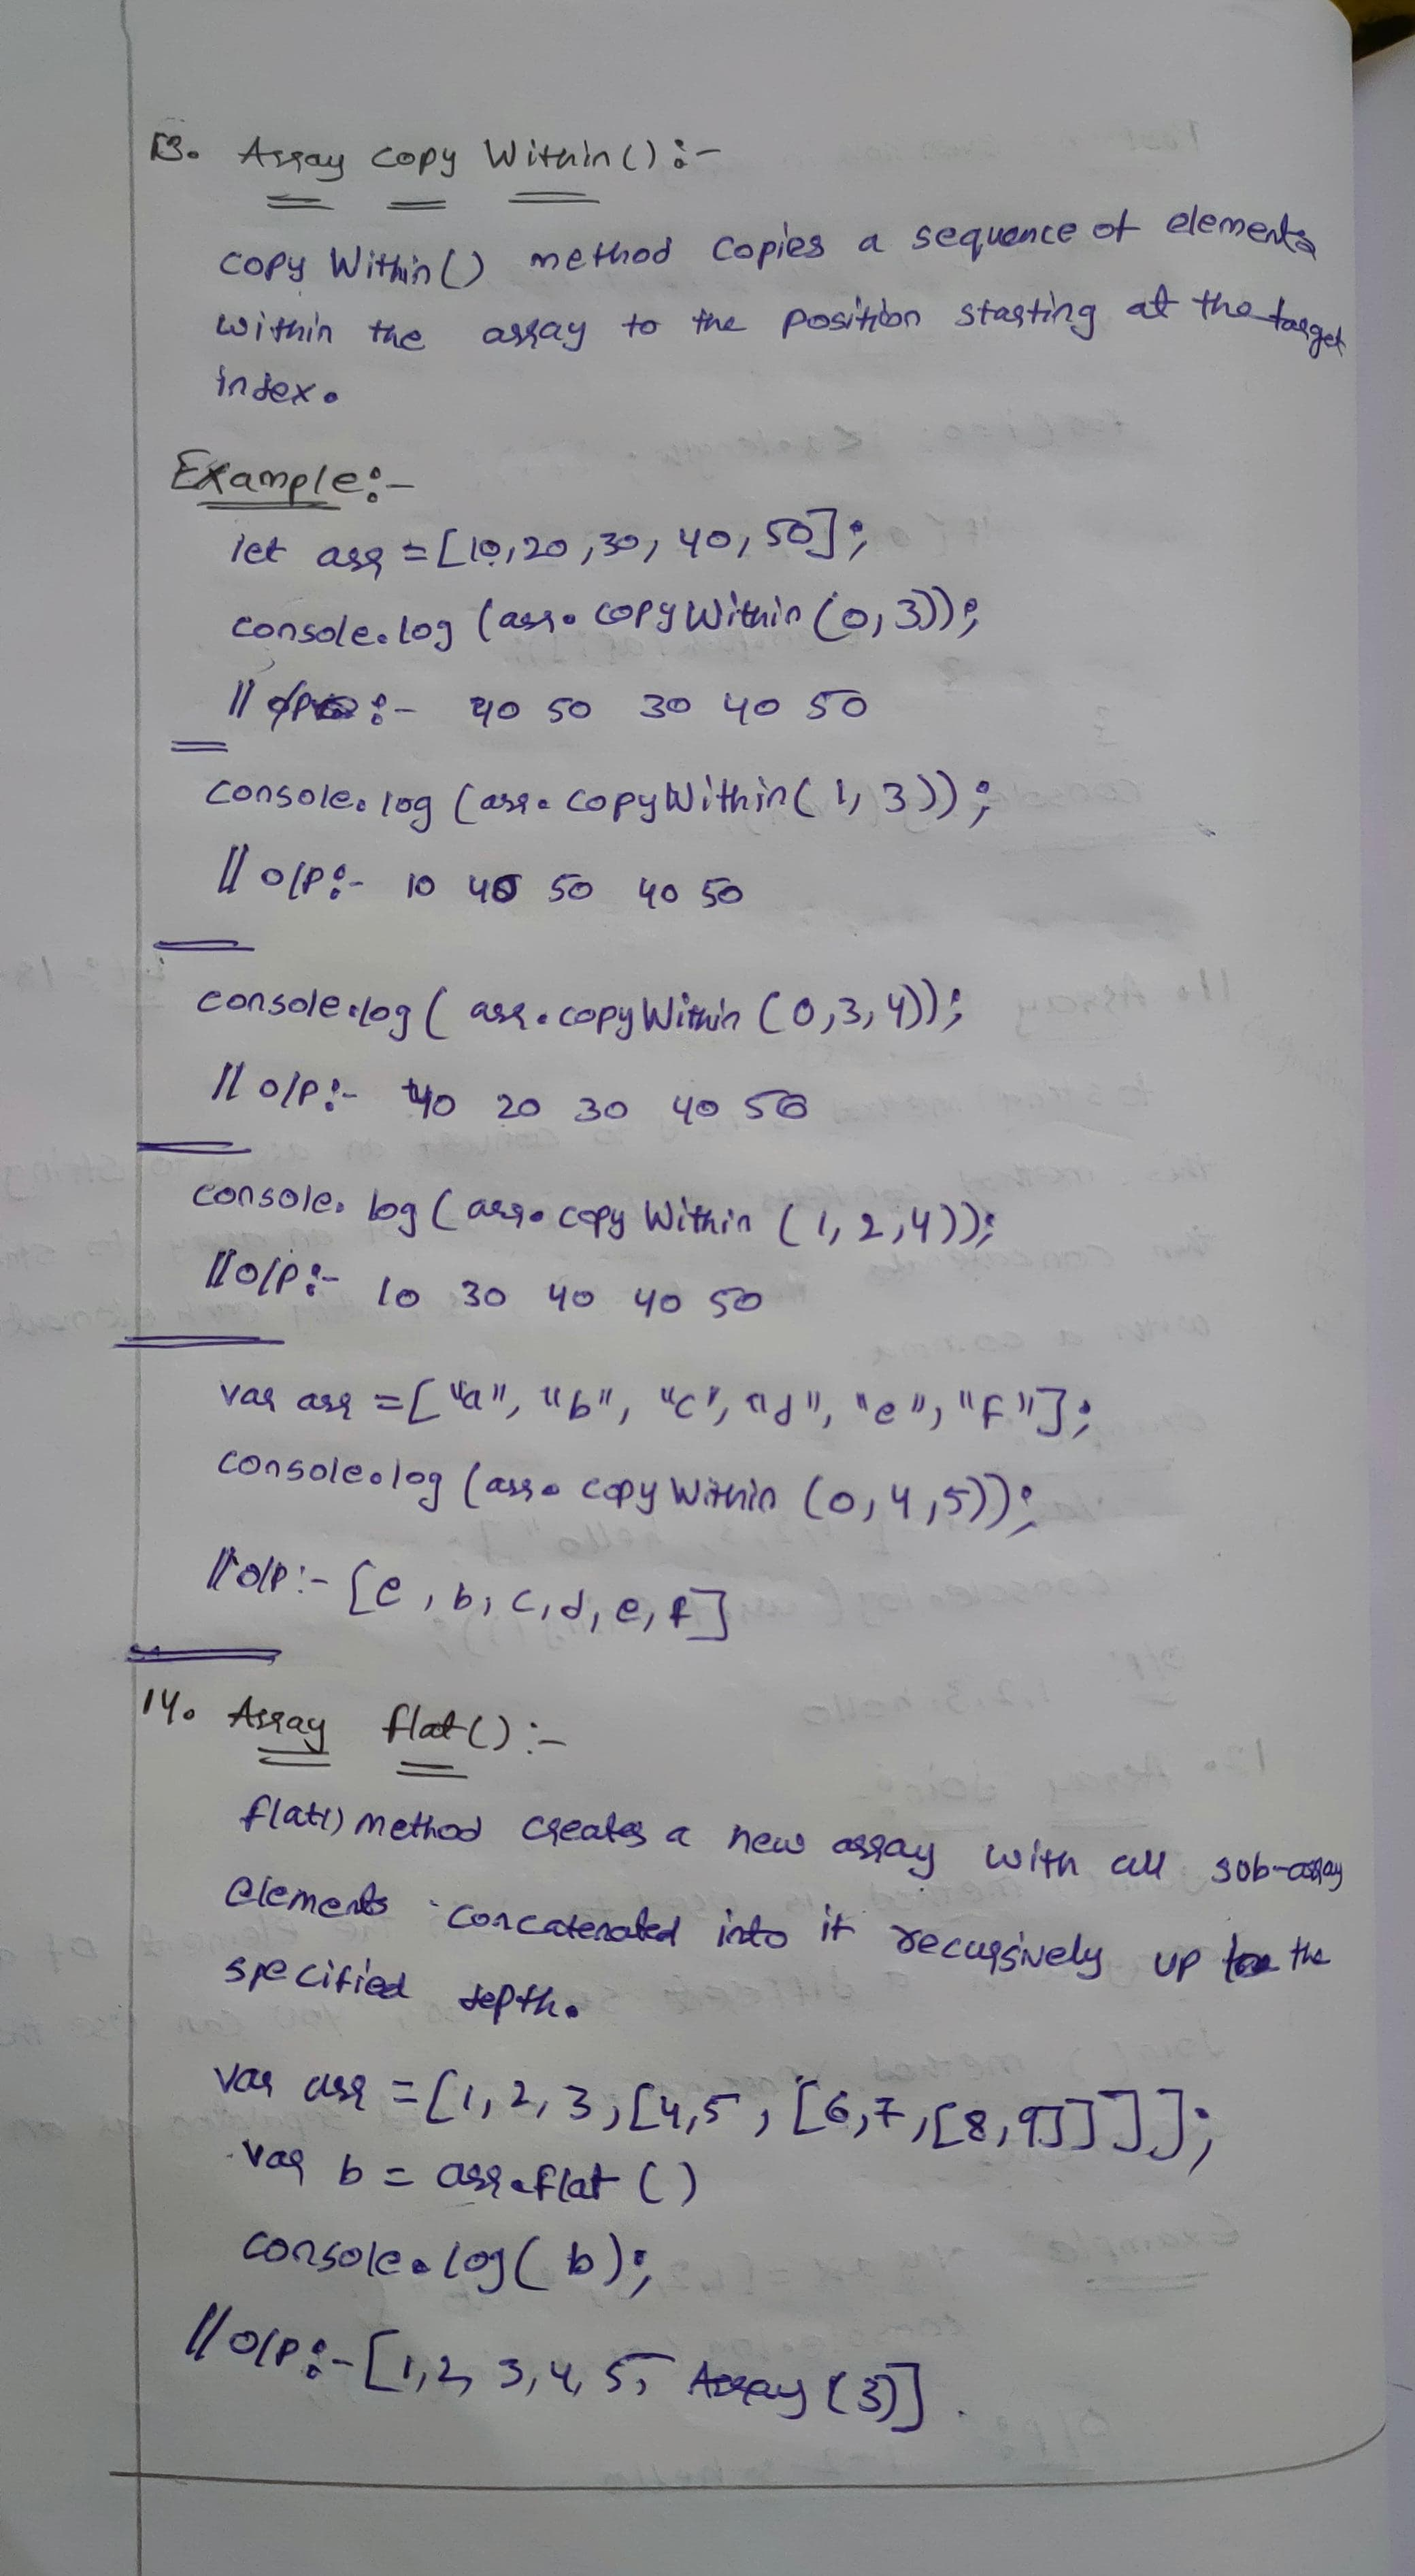 13. Array copy Within() :-
copy Within() method copies a sequence of elements
within the array to the position starting at the target
index.
Example:-
let arr = [10,20,30,40,50];
console.log (arr.copyWithin(0,3));
// :- 40 50 30 40 50
console.log (arr.copyWithin(1,3));
// o/p:- 10 40 50 40 50
console.log( arr.copyWithin (0,3,4));
// o/p:- 40 20 30 40 50
console.log( arr.copyWithin (1,2,4));
//o/p:- 10 30 40 40 50
var arr = ["a", "b", "c", "d", "e", "f"];
console.log (arr.copyWithin (0,4,5));
//o/p:- [e, b, c, d, e, f]
14. Array flat() :-
flat() method creates a new array with all sub-array
elements concatenated into it recursively up the
specified depth.
var arr = [1,2,3,[4,5,[6,7,[8,9]]]];
var b = arr.flat ()
console.log( b);
//o/p:- [1,2, 3,4, 5, Array (3)].